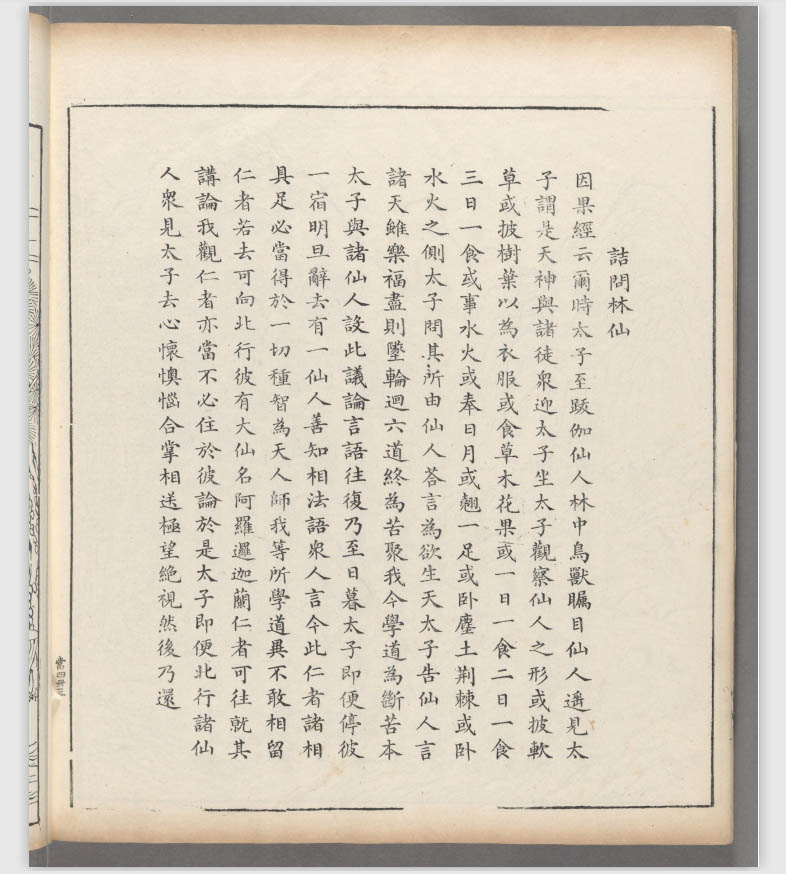 詰問林仙
因果經云爾時太子至䟦伽仙人林中鳥獸矚目仙人遥見太
子謂是天神與諸徒衆迎太子坐太子觀察仙人之形或披軟
草或披樹葉以為衣服或食草木花果或一日一食二日一食
三日一食或事水火或奉日月或翹一足或卧塵土荆棘或卧
水火之側太子問其所由仙人荅言為欲生天太子告仙人言
諸天雖樂福盡則墜輪迴六道終為苦聚我今學道為斷苦本
太子與諸仙人設此議論言語往復乃至日暮太子即便停彼
一宿明旦辭去有一仙人善知相法語衆人言今此仁者諸相
具足必當得於一切種智為天人師我等所學道異不敢相留
仁者若去可向北行彼有大仙名阿羅邏迦蘭仁者可往就其
講論我觀仁者亦當不必住於彼論於是太子即便北行諸仙
人衆見太子去心懷懊惱合掌相送極望絶視然後乃還